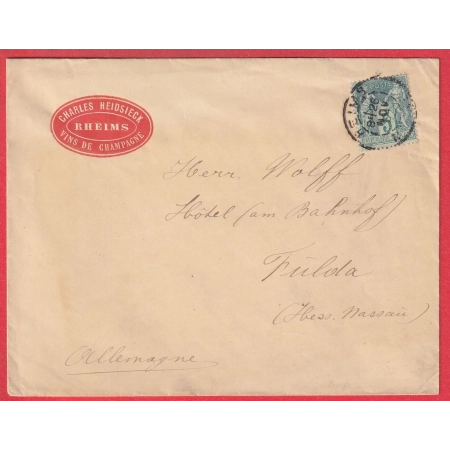 CHARLES HEIDSIECK
RHEIMS
VINS DE CHAMPAGNE
Herr. Wolff
Hôtel (am Bahnhof)
Fulda
(Hess. Nassau)
Allemagne